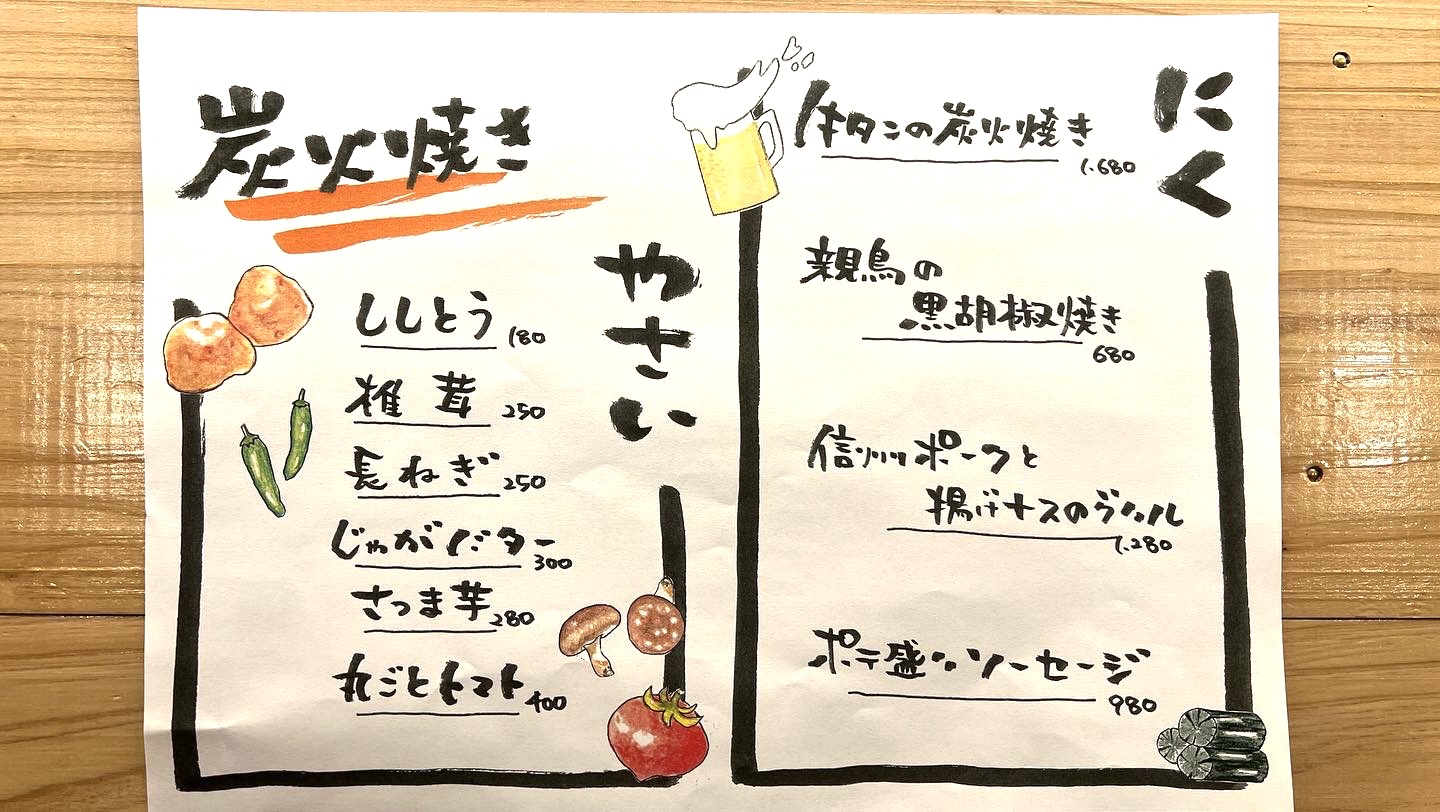 炭火焼き
やさい
ししとう 180
椎茸 250
長ねぎ 250
じゃがバター 300
さつま芋 280
丸ごとトマト 400
にく
牛タンの炭火焼き 1.680
親鳥の
黒胡椒焼き 680
信州ポークと
揚げナスのグリル 1.280
ポテ盛りソーセージ 980